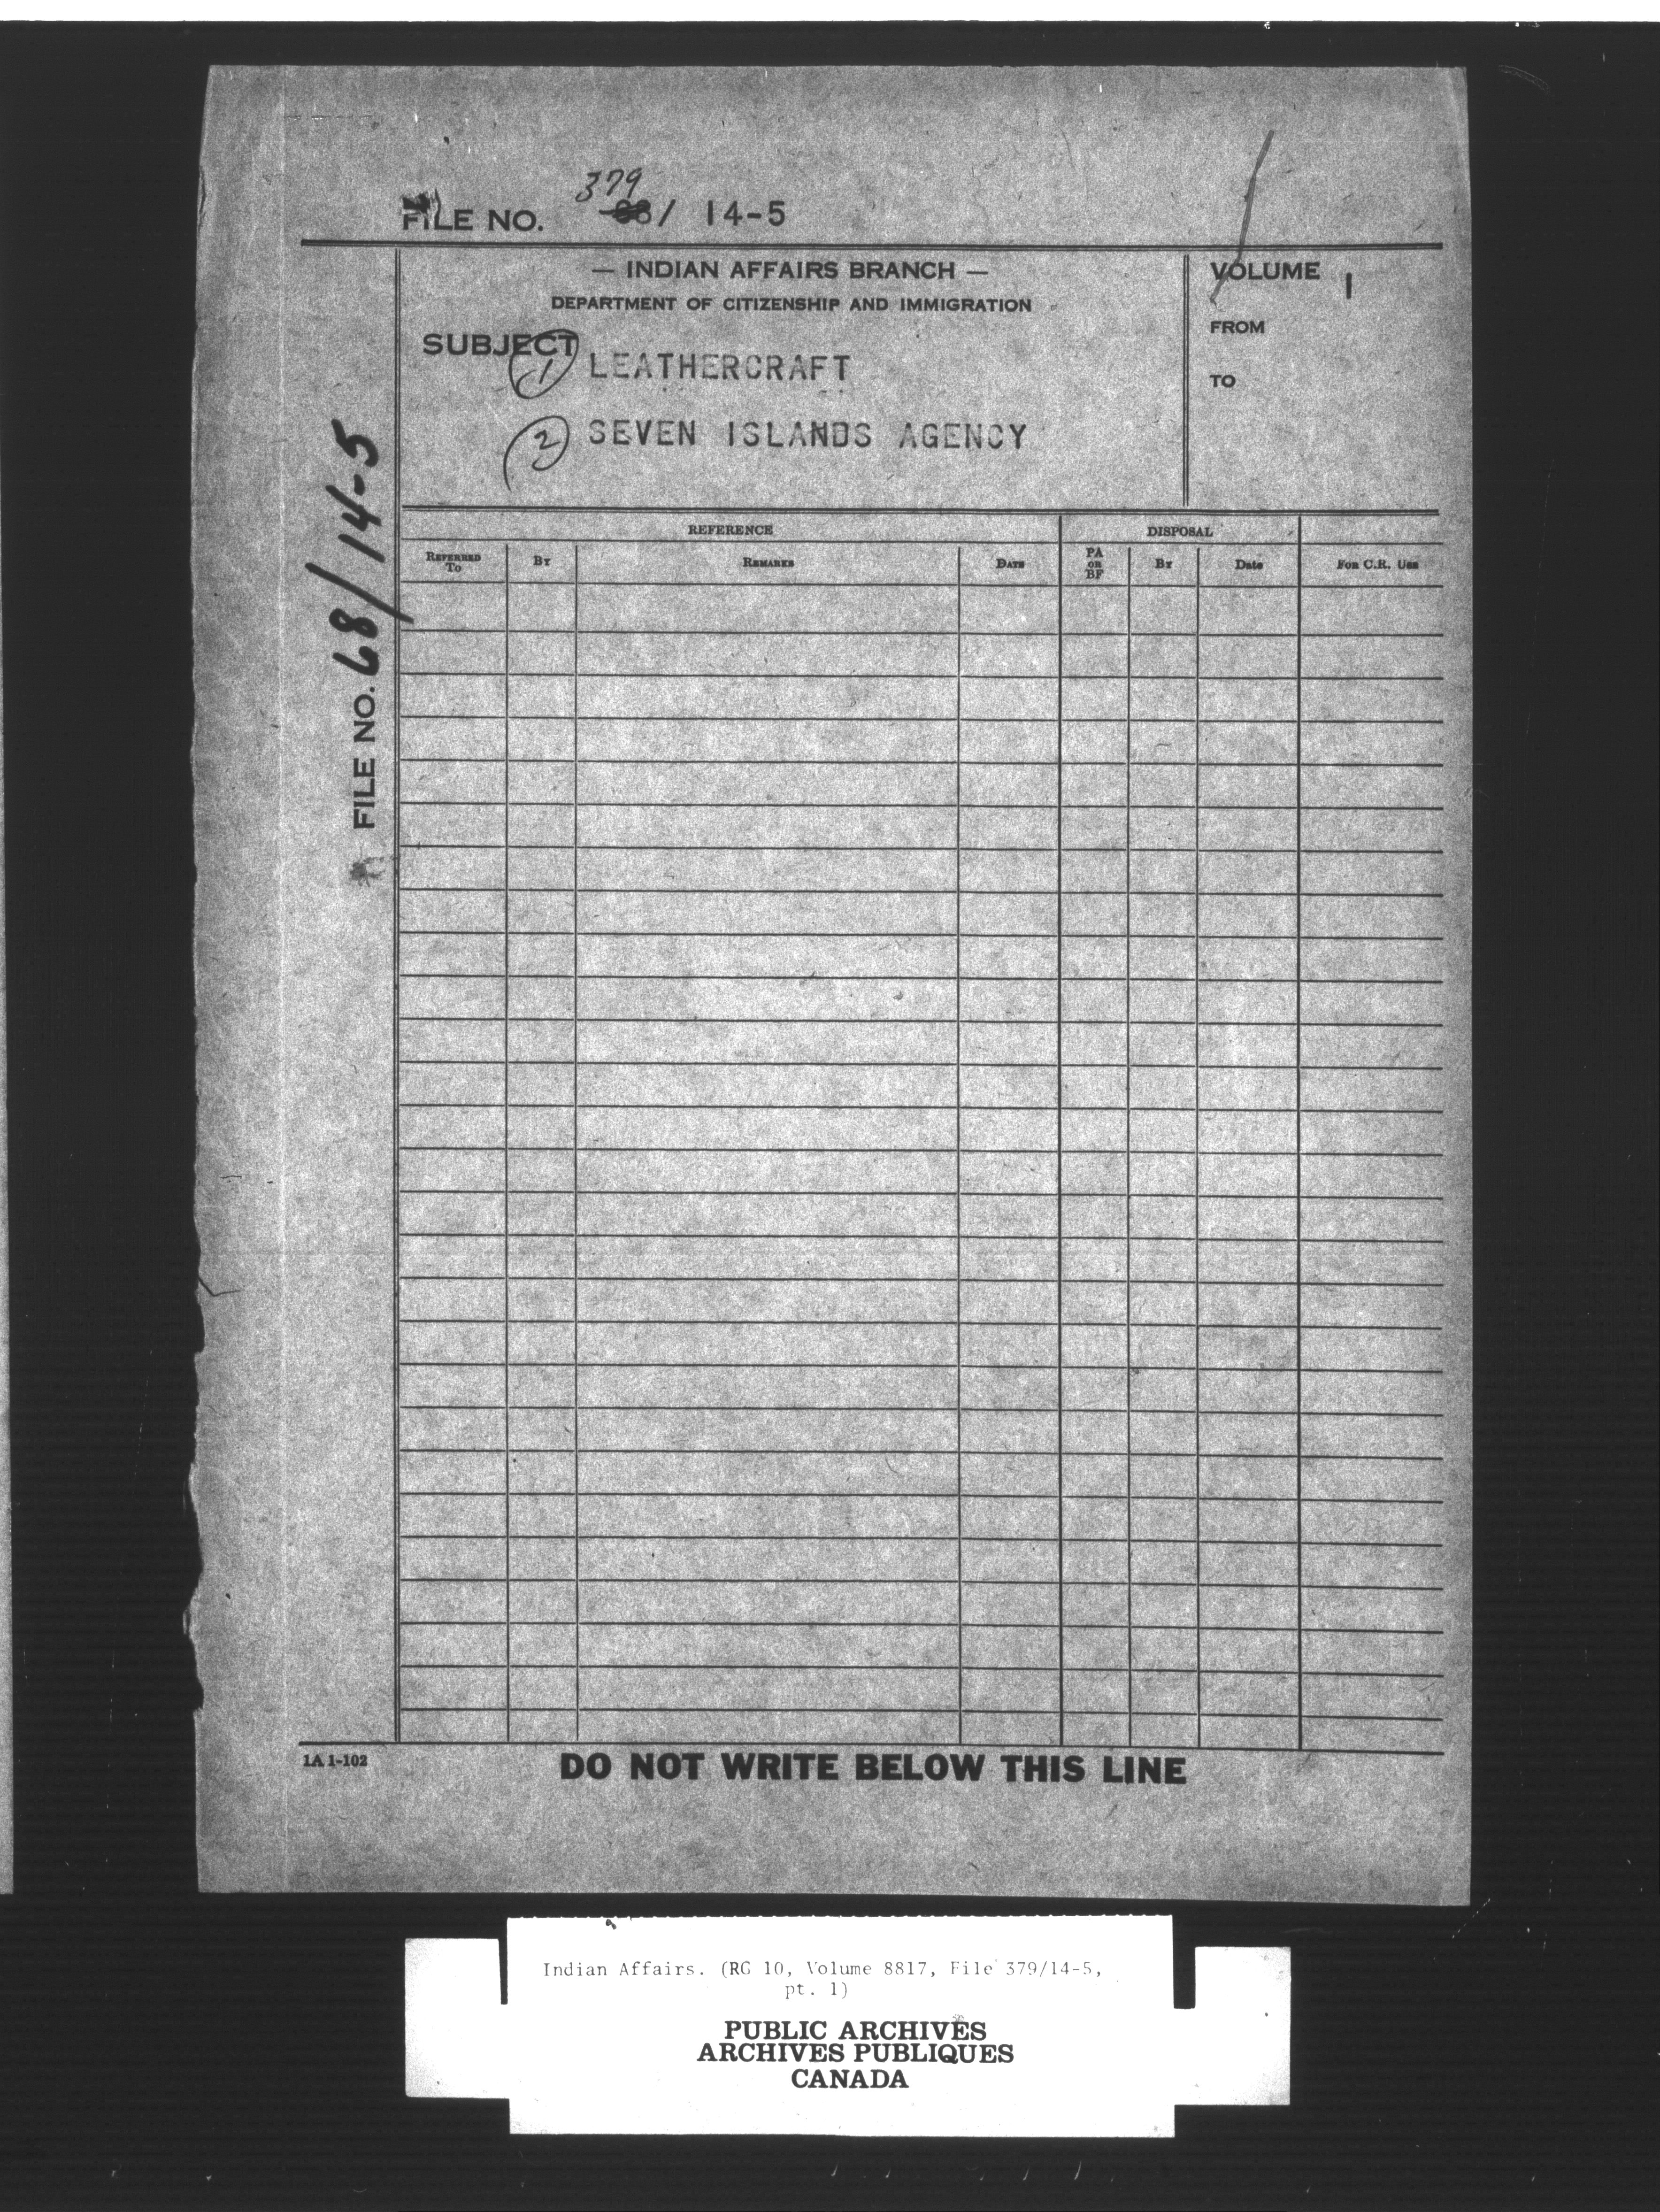 379
FILE NO. 68/ 14-5
— INDIAN AFFAIRS BRANCH —
DEPARTMENT OF CITIZENSHIP AND IMMIGRATION
SUBJECT
1 LEATHERCRAFT
2 SEVEN ISLANDS AGENCY
VOLUME 1
FROM
TO
FILE NO. 68/14-5
REFERENCE DISPOSAL
REFERRED TO BY REMARKS DATE PA OR BF BY Date FOR C.R. USE
1A 1-102
DO NOT WRITE BELOW THIS LINE
Indian Affairs. (RG 10, Volume 8817, File 379/14-5,
pt. 1)
PUBLIC ARCHIVES
ARCHIVES PUBLIQUES
CANADA